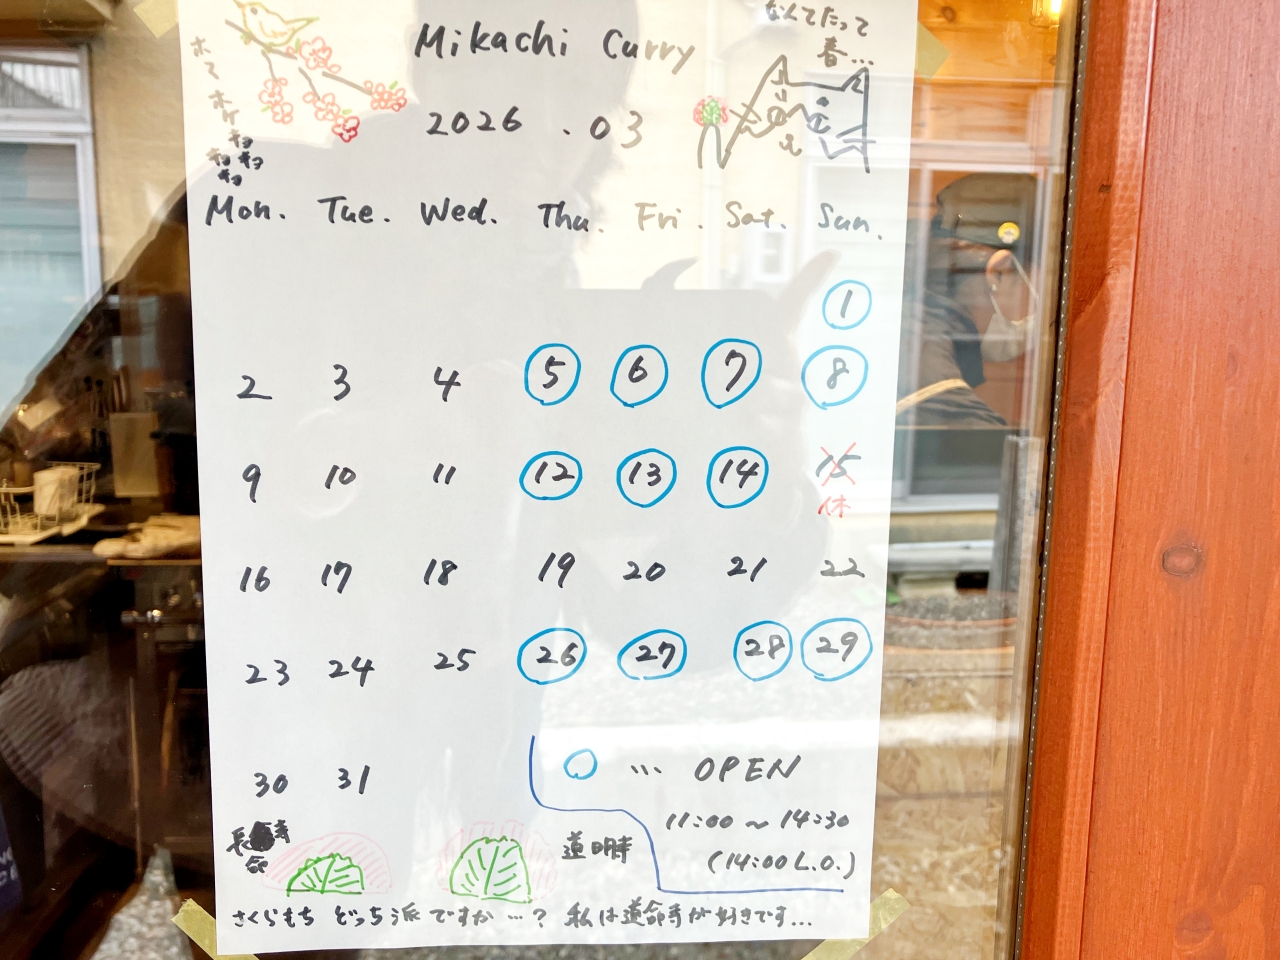 Mikachi Curry
2026 . 03
なんてたって
春...
ホマ
ホケ
キョ
キョ キョ
キョ
Mon. Tue. Wed. Thu. Fri. Sat. Sun.
1
2 3 4 5 6 7 8
9 10 11 12 13 14 15
休
16 17 18 19 20 21 22
23 24 25 26 27 28 29
30 31
○ ... OPEN
11:00 ~ 14:30
(14:00 L.O.)
長 寺
命
道明寺
さくらもち どっち派ですか...? 私は道命寺が好きです...